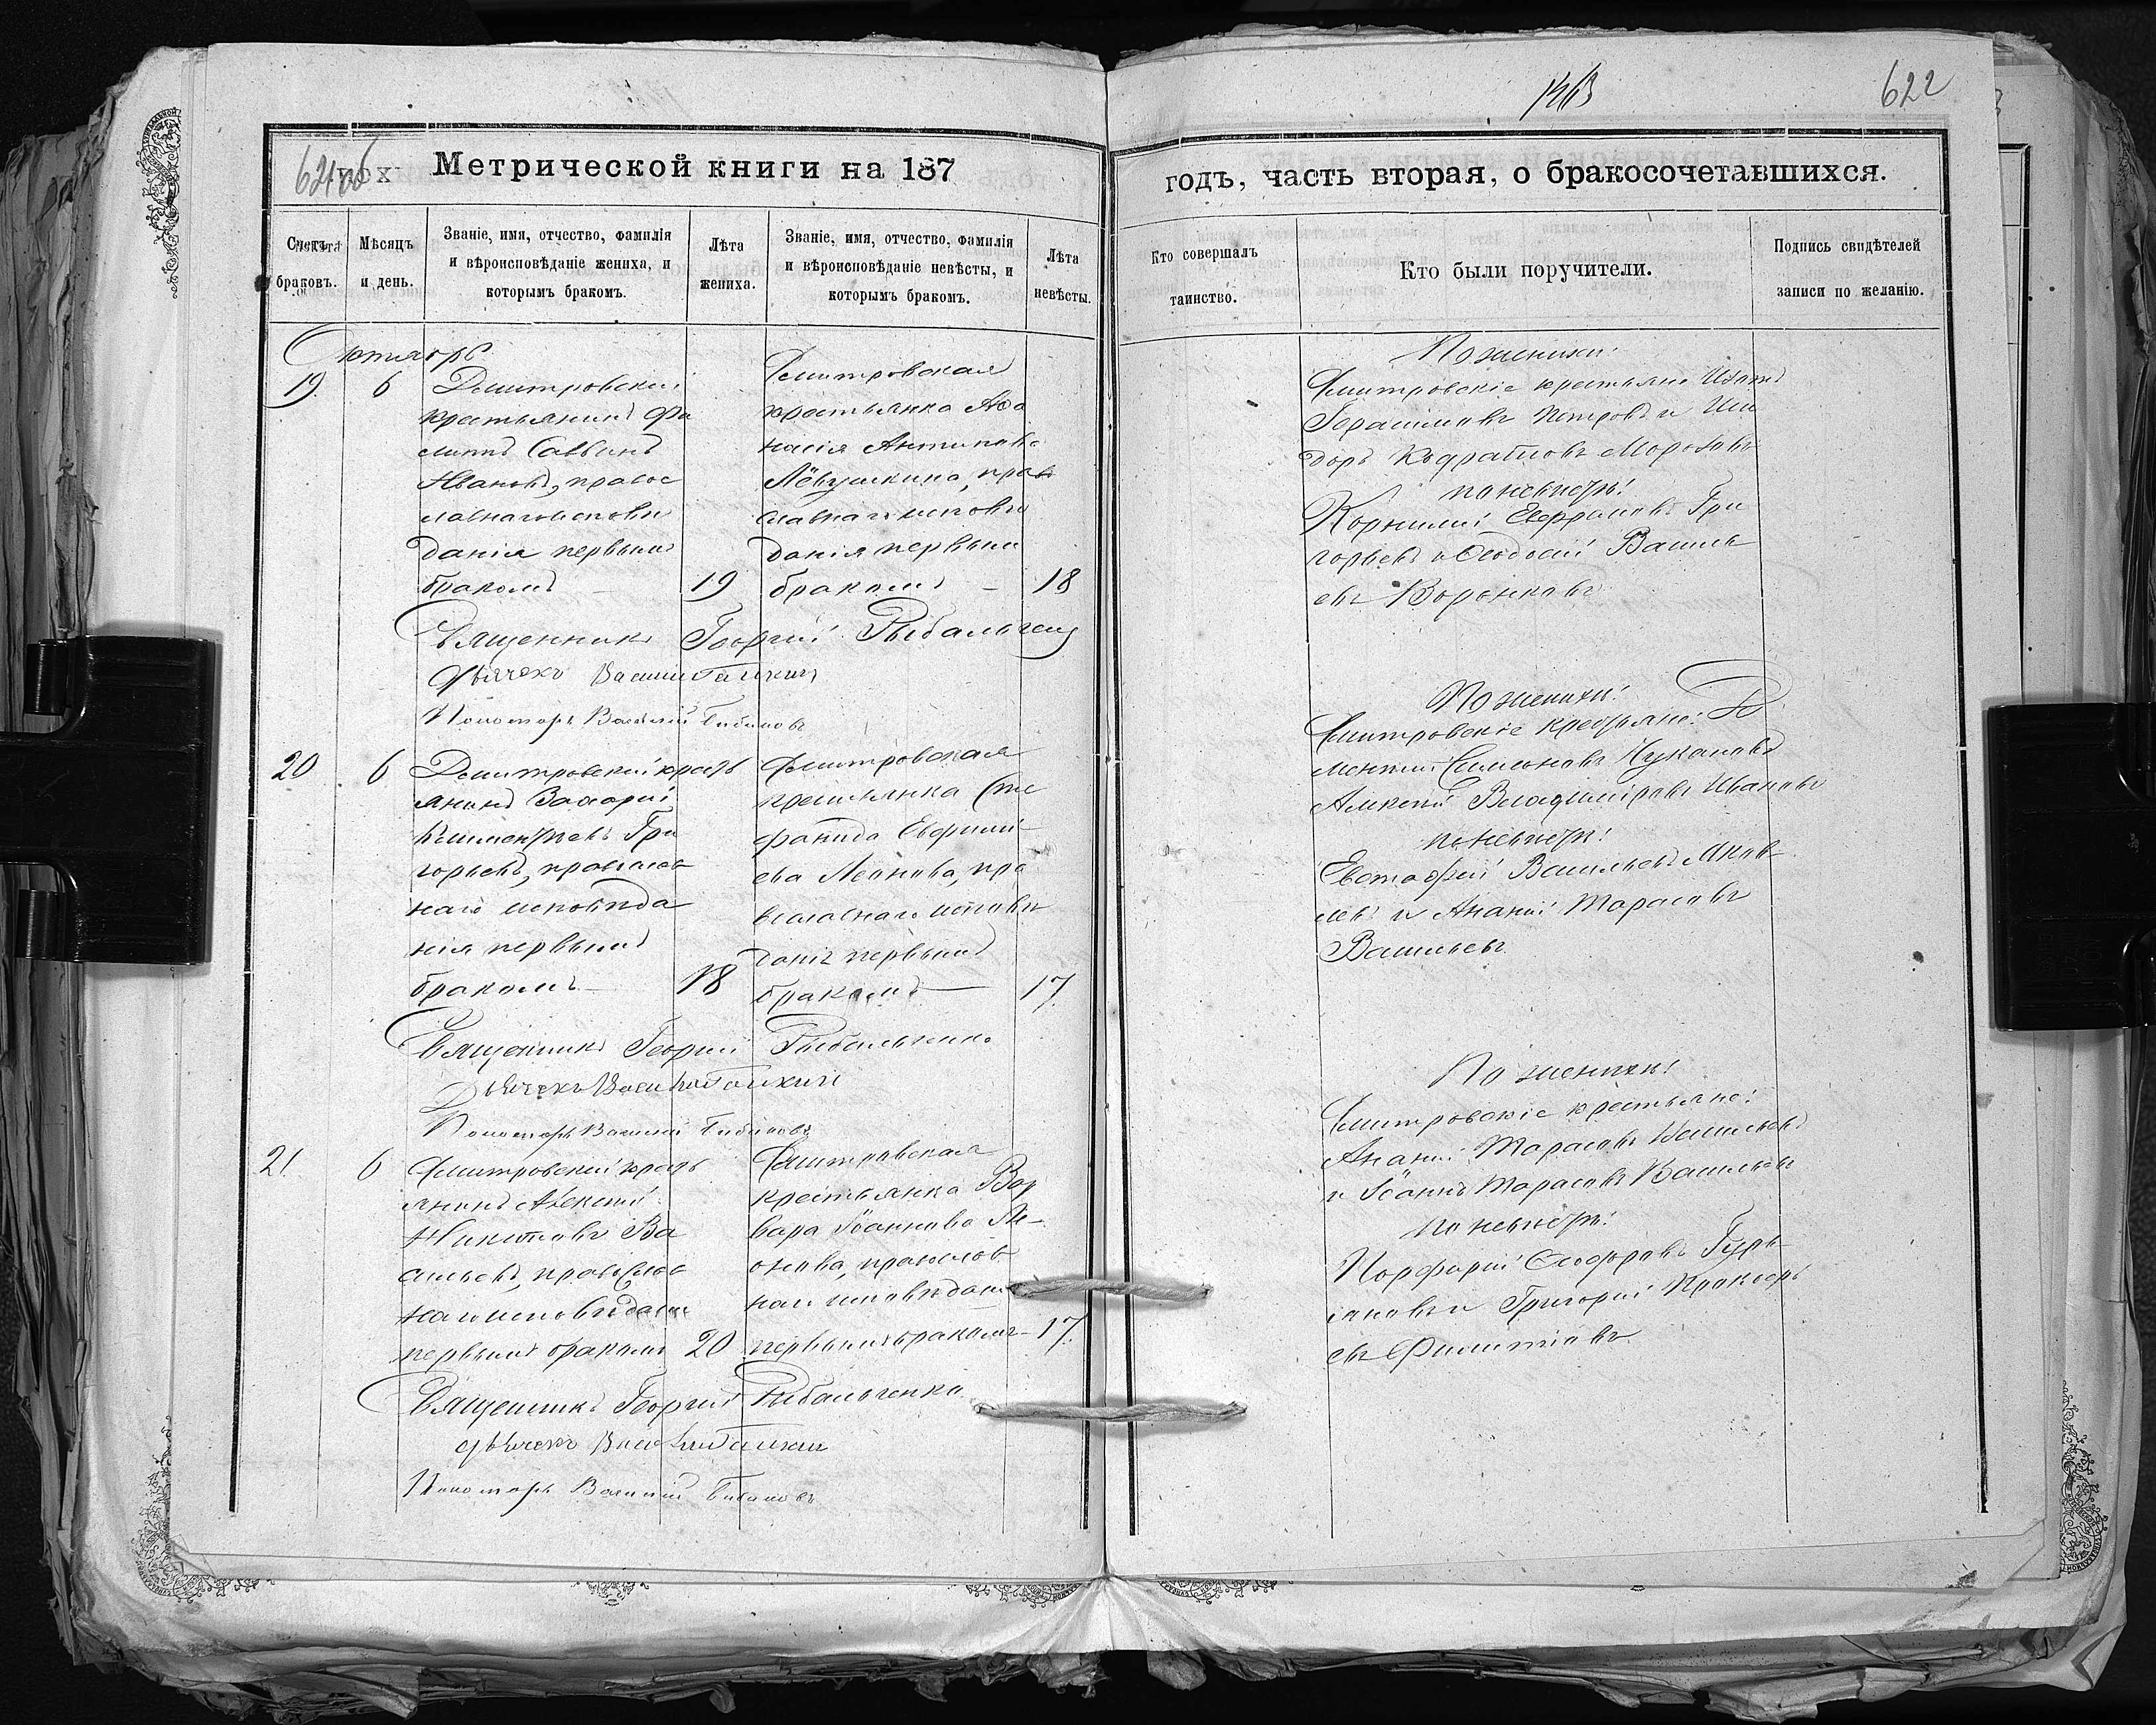 1463
622
621об
Метрической книги на 187
годъ, часть вторая, о бракосочетавшихся.
Счетъ
браковъ.
Мѣсяцъ
и день.
Званіе, имя, отчество, фамилія
и вѣроисповѣданіе жениха, и
которымъ бракомъ.
Лѣта
жениха.
Званіе, имя, отчество, фамилія
и вѣроисповѣданіе невѣсты, и
которымъ бракомъ.
Лѣта
невѣсты.
Кто совершалъ
таинство.
Кто были поручители.
Подпись свидѣтелей
записи по желанію.
Октябрь
19. 6
Дмитровскій
крестьянинъ Фи
липпъ Саввинъ
Ивановъ, правос
лавнаго исповѣ
данія первымъ
бракомъ — 19
Дмитровская
крестьянка Афа
насія Антипова
Лёвушкина, прав
славнаго исповѣ
данія первымъ
бракомъ — 18
Священникъ Георгій Рыбальченко
Дьячекъ Василій
Пономарь Василій
По женихѣ:
Дмитровскіе крестьяне
Герасимовъ Петровъ и Иси
доръ Кодратовъ Морозовъ
по невѣстѣ:
Корнилій Григорьевъ и Феодосій Василь
евъ Воронковъ
20 6
Дмитровскій крестъ
янинъ Захарій
Климентьевъ Гри
горьевъ, православ
наго исповѣда
нія первымъ
бракомъ — 18
Дмитровская
крестьянка Сте
фанида Евфимі
ева Леонова, пра
вославнаго исповѣ
данія первымъ
бракомъ — 17.
Священникъ Георгій Рыбальченко
Дьячекъ Василій
Пономарь Василій
По женихѣ:
Дмитровскіе крестьяне:
Симеоновъ Цукановъ
Алексѣй Владиміровъ Ивановъ
по невѣстѣ:
Евстафій Васильевъ Яков
левъ и Ананій Тарасовъ
Васильевъ
21. 6
Дмитровскій крестъ
янинъ Алексѣй
Никитовъ Ва
сильевъ, православ
наго исповѣданія
первымъ бракомъ 20
Дмитровская
крестьянка Вар
вара Іоаннова Ле
онова, православ
наго исповѣданія
первымъ бракомъ — 17.
Священникъ Георгій Рыбальченко
Дьячекъ Василій
Пономарь Василій
По женихѣ:
Дмитровскіе крестьяне:
Ананій Тарасовъ Васильевъ
и Іоаннъ Тарасовъ Васильевъ
по невѣстѣ:
Порфирій Феодоровъ Гурь
яновъ и Григорій Прокофь
евъ Филиповъ